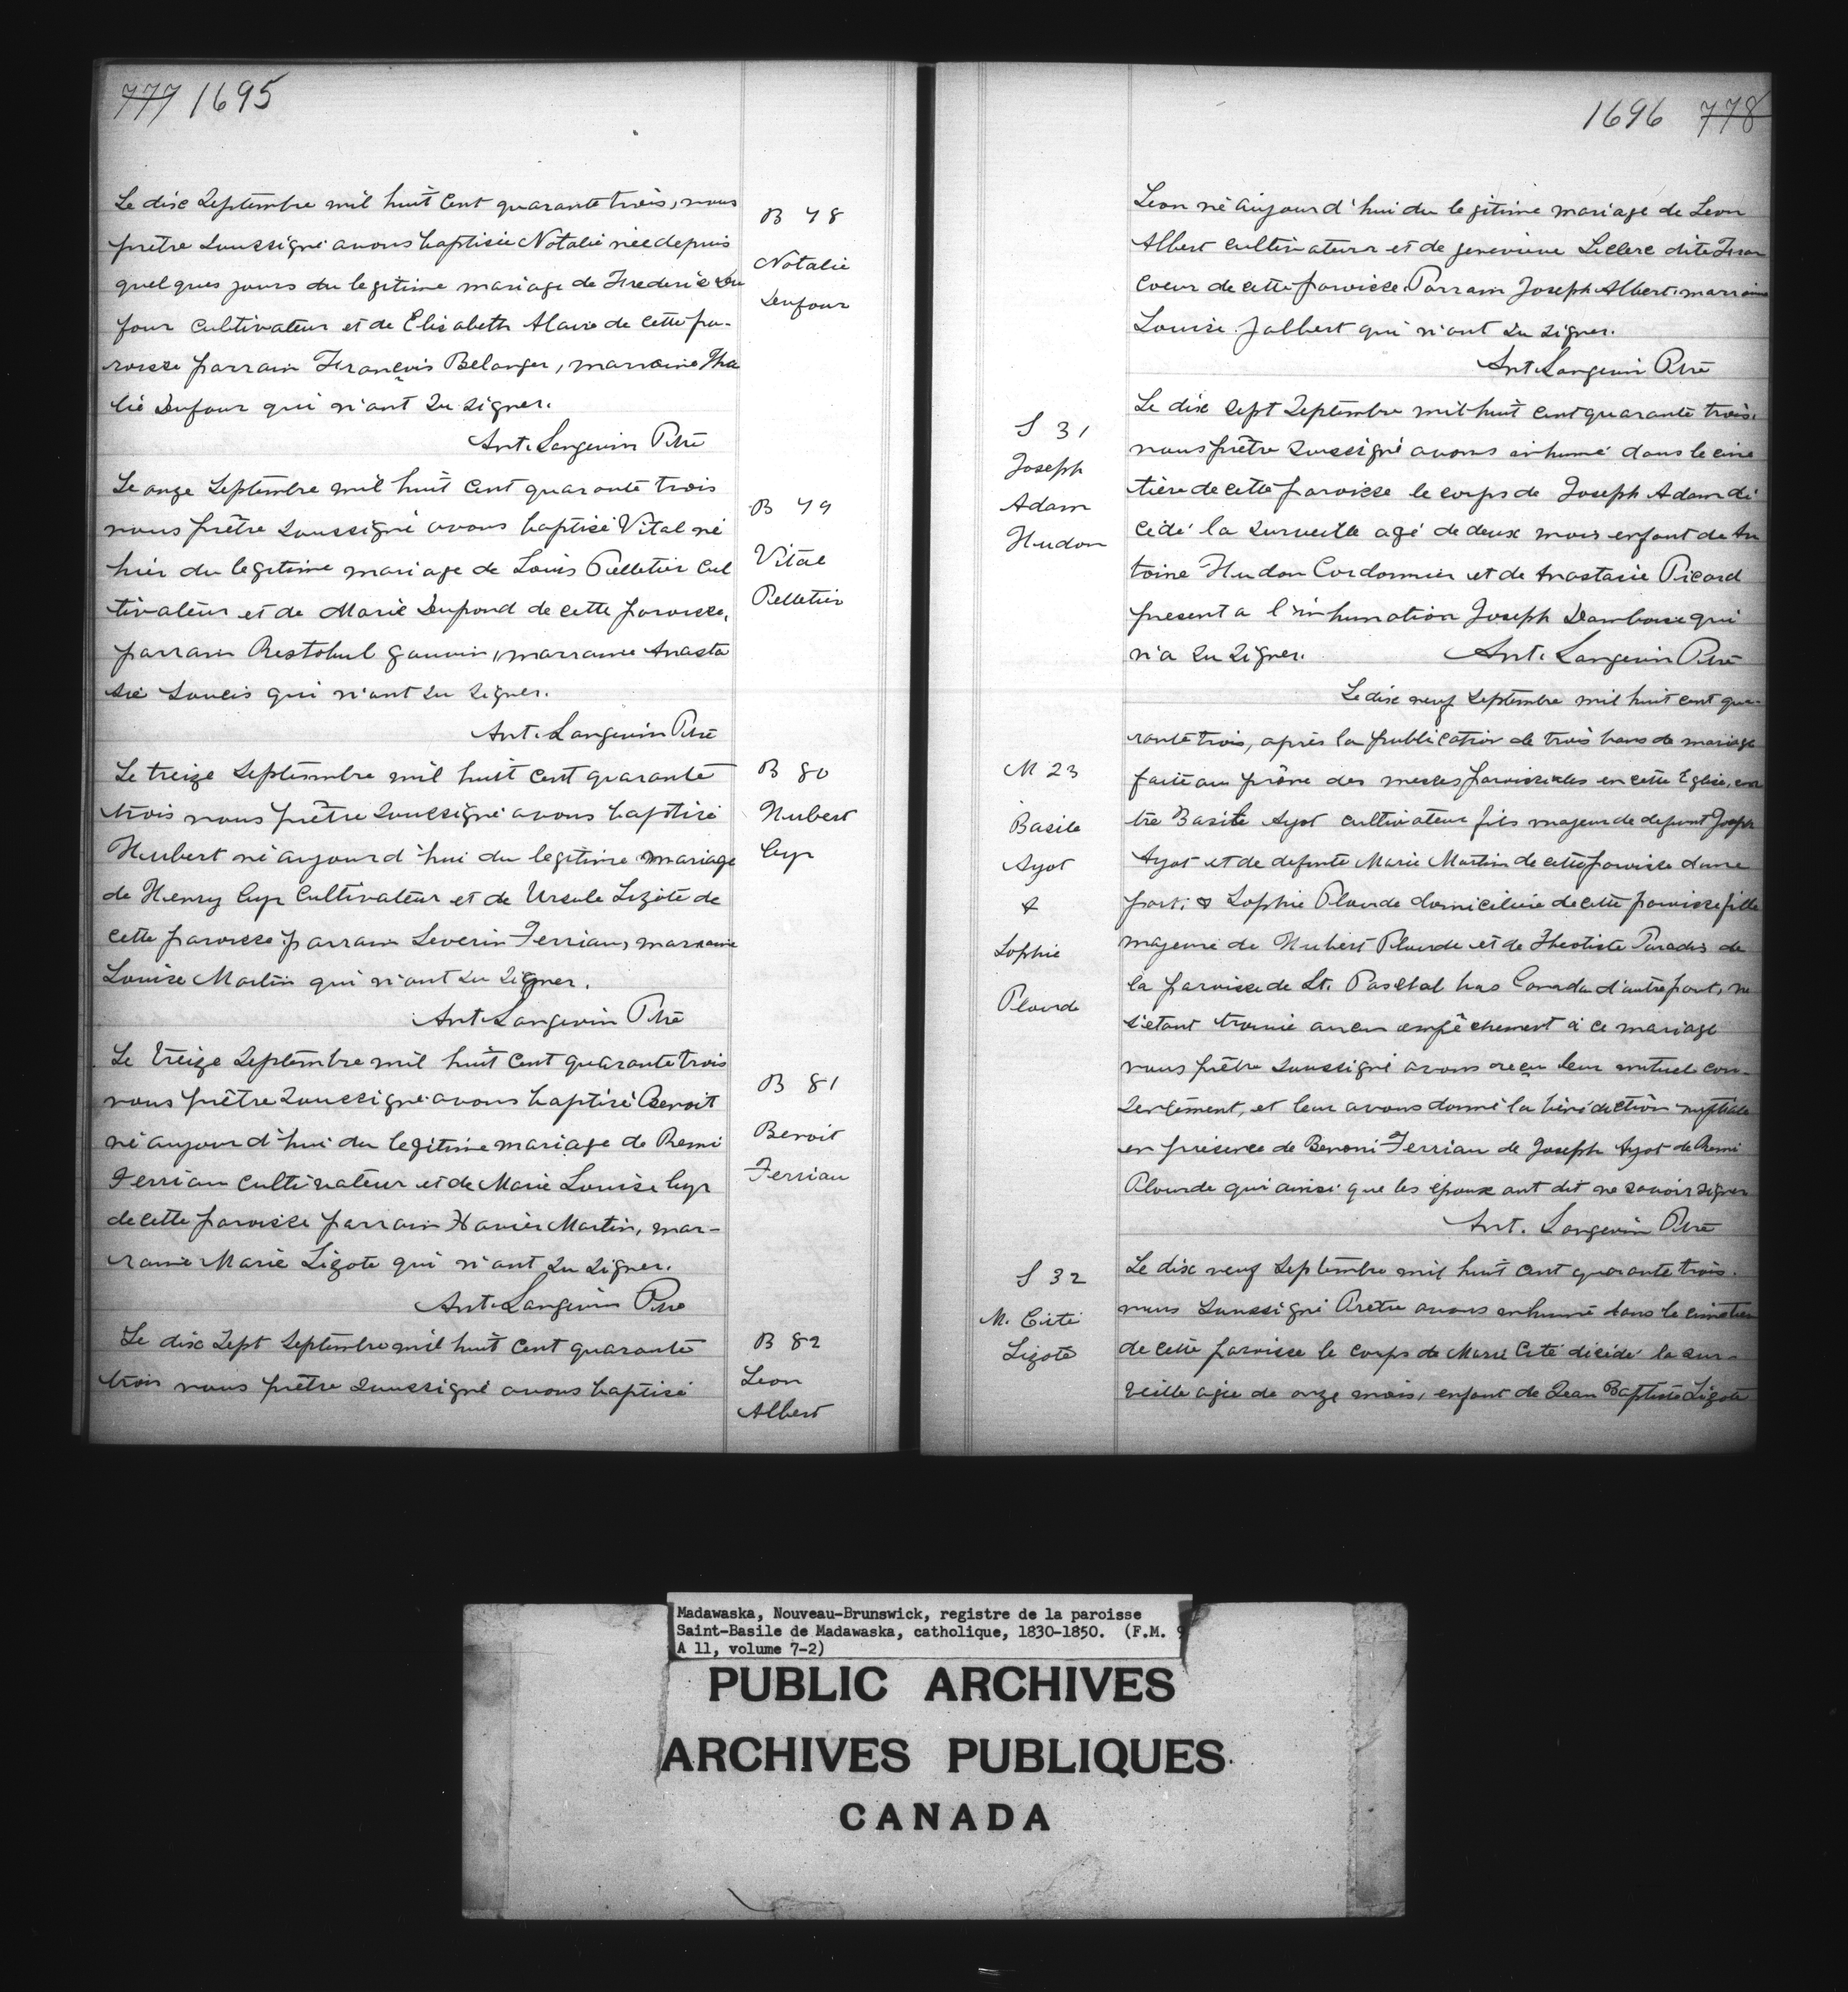 777 1695
Le dix Septembre mil huit Cent quarante trois, nous
prêtre Soussigné avons baptisée Natalie née depuis
quelques jours du legitime mariage de Frederic Du
four Cultivateur et de Elisabeth Alaire de cette pa-
roisse parrain François Belanger, marraine Tha
lie Dufour qui n'ont Su Signer.
Ant. Langevin Ptre
B 78
Natalie
Dufour
Le onze Septembre mil huit Cent quarante trois
nous prêtre Soussigné avons baptisé Vital né
hier du legitime mariage de Louis Pelletier Cul
tivateur et de Marie Dupond de cette paroisse,
parrain Restohul gauvin, marraine Anasta
sie Soucis qui n'ont Su Signer.
Ant. Langevin Ptre
B 79
Vital
Pelletier
Le treize Septembre mil huit Cent quarante
trois nous prêtre Soussigné avons baptisé
Hubert né aujourd'hui du legitime mariage
de Henry Cyr Cultivateur et de Ursule Lizote de
cette paroisse parrain Severin Terriau, marraine
Louise Martin qui n'ont Su Signer.
Ant. Langevin Ptre
B 80
Hubert
Cyr
Le treize Septembre mil huit Cent quarante trois
nous prêtre Soussigné avons baptisé Benoit
né aujourd'hui du legitime mariage de Remi
Terriau Cultivateur et de Marie Louise Cyr
de cette paroisse parrain Xavier Martin, mar-
raine Marie Lizote qui n'ont Su Signer.
Ant. Langevin Ptre
B 81
Benoit
Terriau
Le dix Sept Septembre mil huit Cent quarante
trois nous prêtre Soussigné avons baptisé
B 82
Leon
Albert
1696 778
Leon né aujourd'hui du legitime mariage de Leon
Albert Cultivateur et de genevieve Leclerc dite Fran
Coeur de cette paroisse. Parrain Joseph Albert marraine
Louise Jalbert qui n'ont Su Signer.
Ant Langevin Ptre
S 31
Joseph
Adam
Hudon
Le dix Sept Septembre mil huit Cent quarante trois.
nous prêtre Soussigné avons inhumé dans le cime
tière de cette paroisse le corps de Joseph Adam dé
cédé la Surveille agé de deux mois enfant de An
toine Hudon Cordonnier et de Anastasie Picard
present a l'inhumation Joseph Damboise qui
n'a Su Signer. Ant. Langevin Ptre
M 23
Basile
Ayot
&
Sophie
Plourde
Le dix neuf Septembre mil huit Cent qua-
rante trois, après la publication de trois bans de mariage
faite au prône des messes paroissiales en cette Eglise, en
tre Basile Ayot Cultivateur fils majeur de defunt Joseph
Ayot et de defunte Marie Martin de cette paroisse d'une
part; & Sophie Plourde domiciliée de cette paroisse fille
majeure de Hubert Plourde et de Theotiste Paradis de
la paroisse de St. Paschal bas Canada d'autre part, ne
s'etant trouvé aucun empêchement à ce mariage
nous prêtre Soussigné avons reçu leur mutuel con-
sentement, et leur avons donné la bénédiction nuptiale
en présence de Benoni Terriau de Joseph Ayot de Remi
Plourde qui ainsi que les époux ont dit ne savoir signer
Ant. Langevin Ptre
S 32
M. Cité
Lizote
Le dix neuf Septembre mil huit Cent quarante trois.
nous Soussigné Pretre avons inhumé dans le cimetier
de cette paroisse le corps de Marie Cité décédé la sur-
veille agée de onze mois, enfant de Jean Baptiste Lizote
Madawaska, Nouveau-Brunswick, registre de la paroisse
Saint-Basile de Madawaska, catholique, 1830-1850. (F.M. 9
A 11, volume 7-2)
PUBLIC ARCHIVES
ARCHIVES PUBLIQUES
CANADA